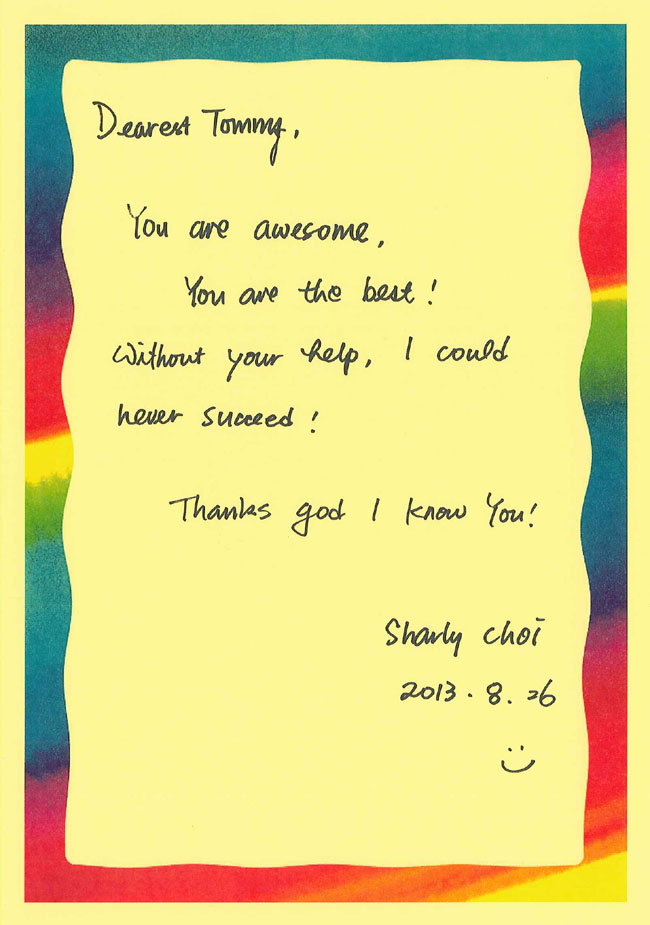 Dearest Tommy,
You are awesome,
You are the best!
Without your help, I could
never succeed!
Thanks god I know You!
Sharly Choi
2013.8.26